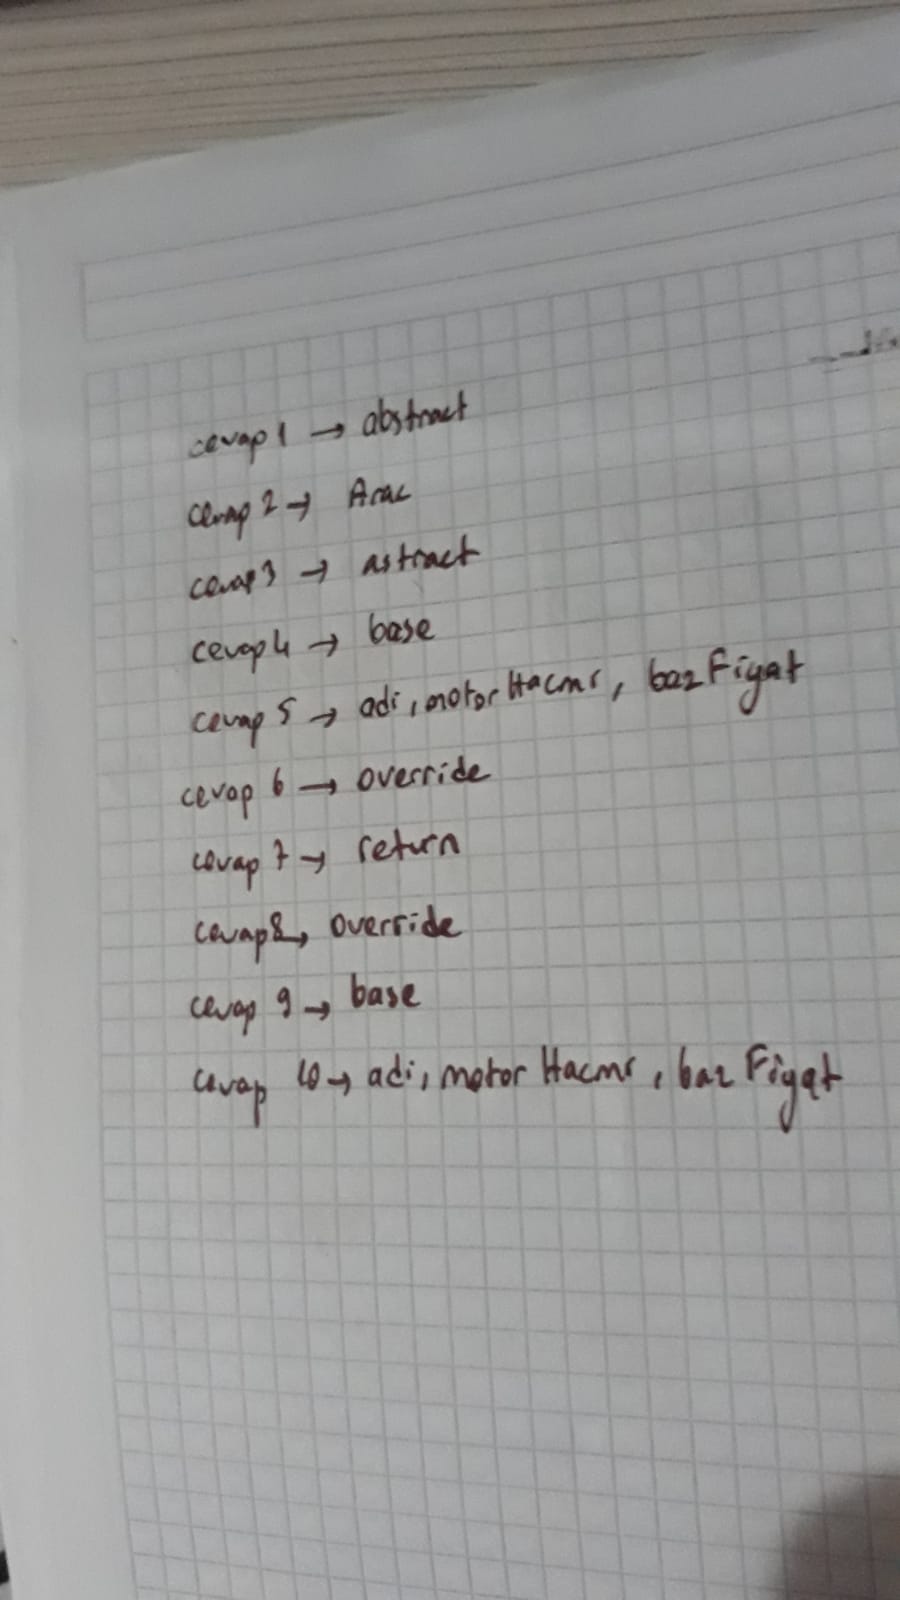 cevap 1 → abstract
cevap 2 → Arac
cevap 3 → astract
cevap 4 → base
cevap 5 → adi, motorHacmi, bazFiyat
cevap 6 → override
cevap 7 → return
cevap 8 → override
cevap 9 → base
cevap 10 → adi, motor Hacmi, baz Fiyat